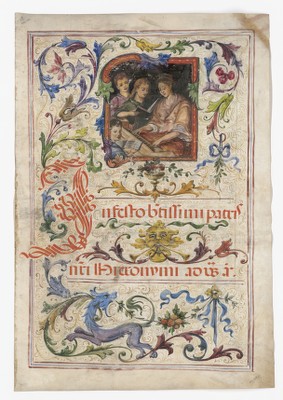 In festo btissimi patris
sñti Hieronymi ad vs̃. ã.